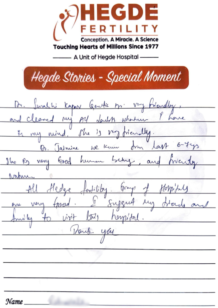 HEGDE
FERTILITY
Conception. A Miracle. A Science
Touching Hearts of Millions Since 1977
A Unit of Hegde Hospital
Hegde Stories - Special Moment
Dr. Swathi Kapar Garu is very friendly,
and cleared my all doubts whatever I have
in my mind she is very friendly.
Dr. Jasmine we know from last 4-5 yrs
She is very Good human being, and friendly
nature.
All Hegde fertility Group of Hospitals
are very good. I suggest my friends and
family to visit this hospital.
Thank you
Name